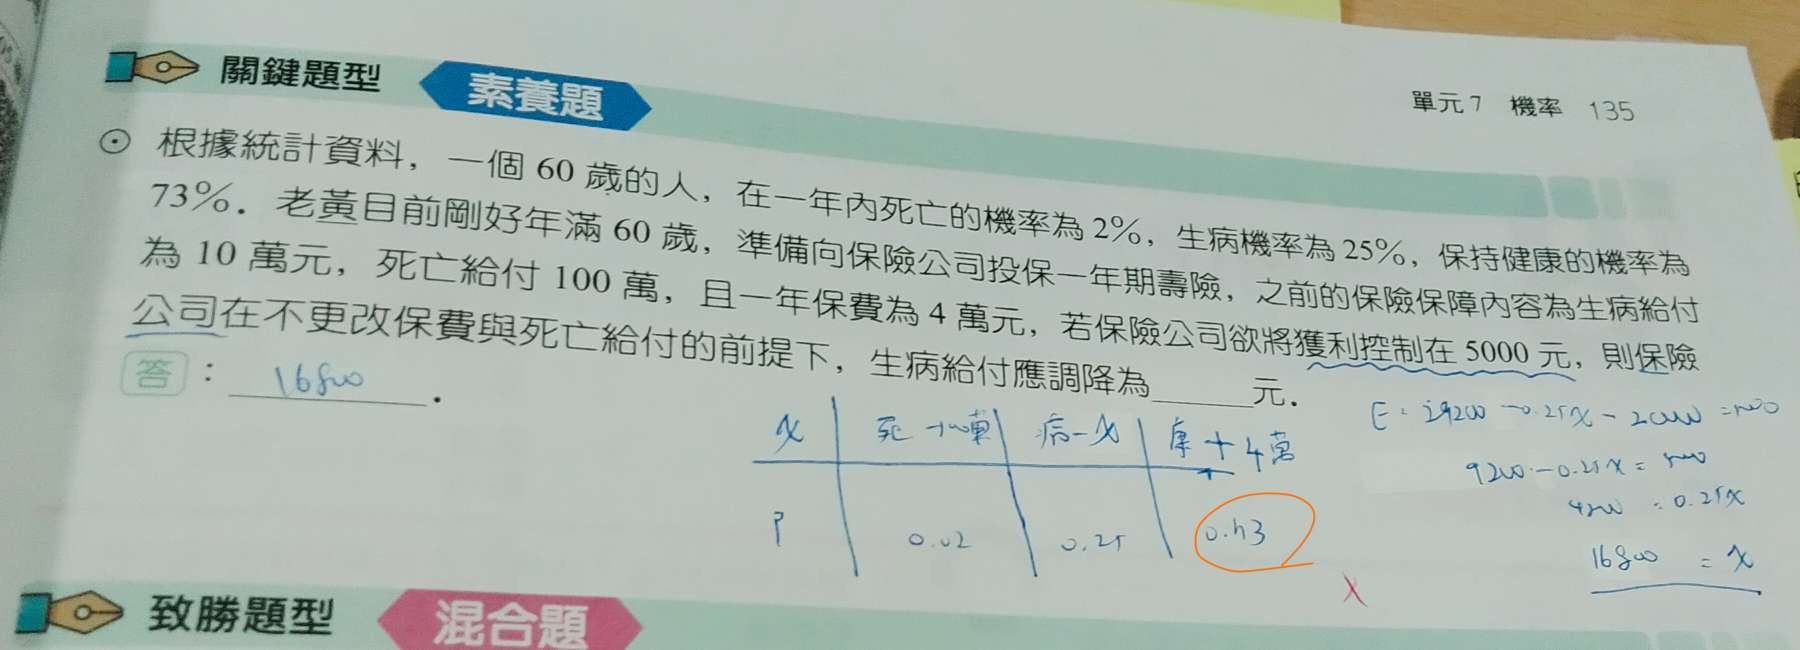 關鍵題型 素養題
單元 7 機率 135
⊙ 根據統計資料，一個 60 歲的人，在一年內死亡的機率為 2%，生病機率為 25%，保持健康的機率為
73%．老黃目前剛好年滿 60 歲，準備向保險公司投保一年期壽險，之前的保險保障內容為生病給付
為 10 萬元，死亡給付 100 萬，且一年保費為 4 萬元，若保險公司欲將獲利控制在 5000 元，則保險
公司在不更改保費與死亡給付的前提下，生病給付應調降為______元．
答：16800．
x 死 -100萬 病-x 康+4萬
P 0.02 0.25 0.73
E = 29200 -0.25x - 20000 = 5000
9200 -0.25x = 5000
4200 = 0.25x
16800 = x
X
致勝題型 混合題